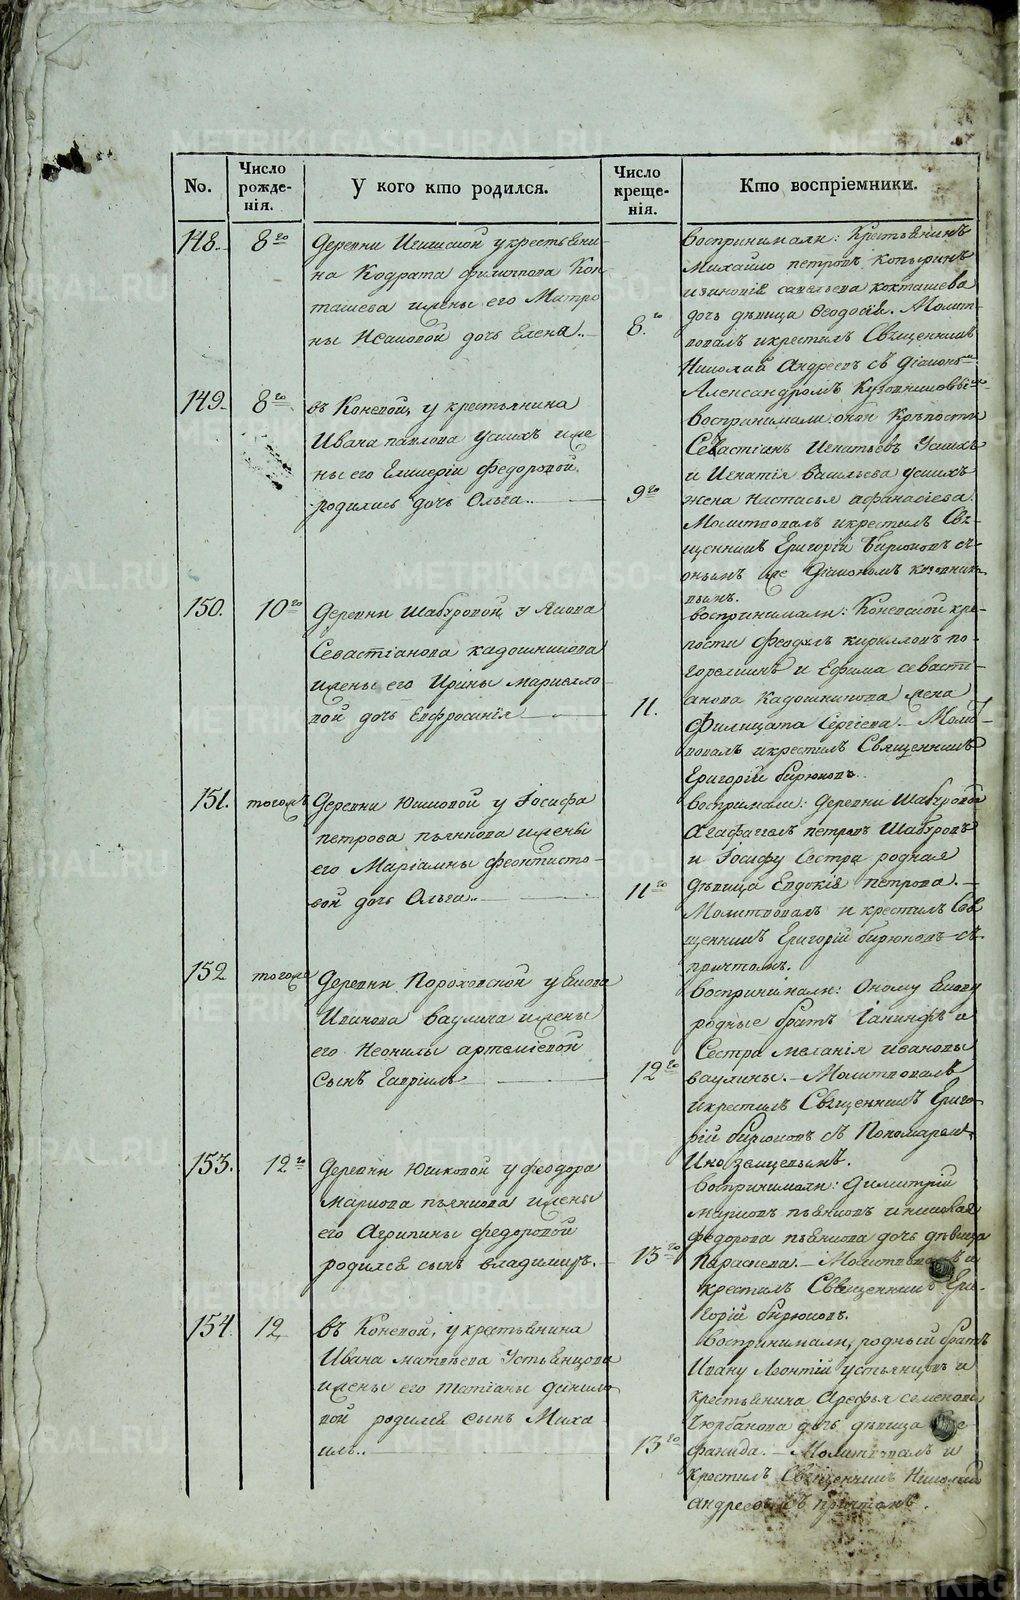 No.
Число рожде-нія.
У кого кто родился.
Число креще-нія.
Кто воспріемники.
148.
8го
Деревни у крестьяни-
на Кодрата филипова Кок
ташева жены его Матро
ны Исаковой дочь Елена.
8го
воспринимали: Крестьянинъ
Михайло петровъ копыринъ
изиновія савельева кокташева
дочь дѣвица Ѳеодосія. Молит-
вовалъ икрестилъ Священникъ
Николай Андреевъ съ діакономъ
Александромъ Кузовниковымъ
149.
8го
въ Коневой, у крестьянина
Ивана павлова усихъ же
ны его Гликеріи Федоровой
родилась дочь Ольга..
9го
воспринимали: оной Крѣпости
Севастіанъ Игнатьевъ Усихъ
и Игнатія васильева усихъ
жена настасья афанасіева.
Молитвовалъ икрестилъ Свя-
щенникъ Григорій Бирюковъ съ
онымъ же Діакономъ кузовнико-
вымъ.
150.
10го
Деревни Шабуровой, у Якова
Севастіанова кадошникова
жены его Ирины маркелло
вой дочь Евфросинія
11.
воспринимали: Коневской кре-
пости Феодулъ кирилловъ по-
горелкинъ и Ефима севасті-
анова кадошникова жена
Филицата Сергіева. Молит-
вовалъ икрестилъ Священникъ
Григорій бирюковъ.
151.
тогожъ
Деревни Юшковой у Іосифа
петрова пьянкова жены
его Маріамны феоктисто-
вой дочь Ольга..
11го
воспримали: Деревни Шабуровой
Агафангелъ петровъ Шабуровъ
и Іосифу Сестра родная
дѣвица Евдокія петрова.
Молитвовалъ и крестилъ Свя
щенникъ Григорій бирюковъ съ
притчомъ.
152
тогожъ
Деревни Пороховской у Якова
Иванова Ваулина жены
его Неонилы артеміевой
сынъ Гавріилъ
12го
Воспринимали: Оному Якову
родные братъ Іакинфъ и
Сестра меланія ивановы
ваулины. Молитвовалъ
икрестилъ Священникъ Григо-
рій бирюковъ съ Пономаремъ
Иноземцевымъ.
153.
12го
Деревни Юшковой у феодора
маркова пьянкова жены
его Агрипины федоровой
родился сынъ владимиръ.
13го
Воспринимали: Димитрій
марковъ пьянковъ и николая
федорова пьянкова дочь дѣвица
Параскева. Молитвовалъ и
крестилъ Священникъ Гри-
горій бирюковъ.
154.
12
въ Коневой, у крестьянина
Ивана матвѣева Устьянцова
жены его Татіаны данило
вой родился сынъ Миха
илъ..
13го
Воспринимали, родный братъ
Ивану Леонтій устьянцовъ и
крестьянина Арефья семенова
Чюрбанова дочь дѣвица
фанида. Молитвовалъ и
крестилъ Священникъ Николай
андреевъ съ притчомъ.
METRIKI.GASO-URAL.RU